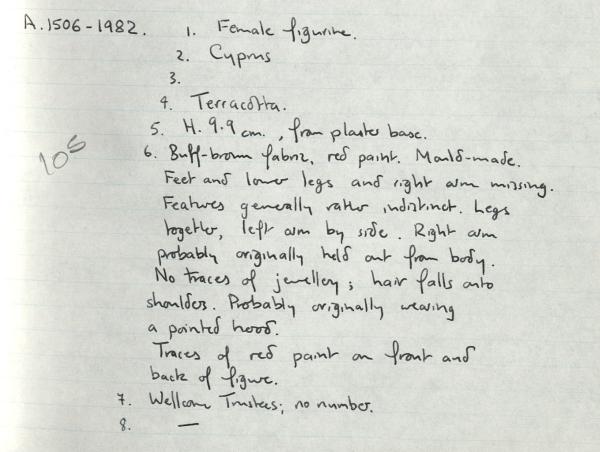 A.1506-1982. 1. Female figurine.
2. Cyprus
3.
4. Terracotta.
5. H. 9.9 cm., from plaster base.
105
6. Buff-brown fabric, red paint. Mould-made.
Feet and lower legs and right arm missing.
Features generally rather indistinct. Legs
together, left arm by side. Right arm
probably originally held out from body.
No traces of jewellery; hair falls onto
shoulders. Probably originally wearing
a pointed hood.
Traces of red paint on front and
back of figure.
7. Wellcome Trustees; no number.
8. —